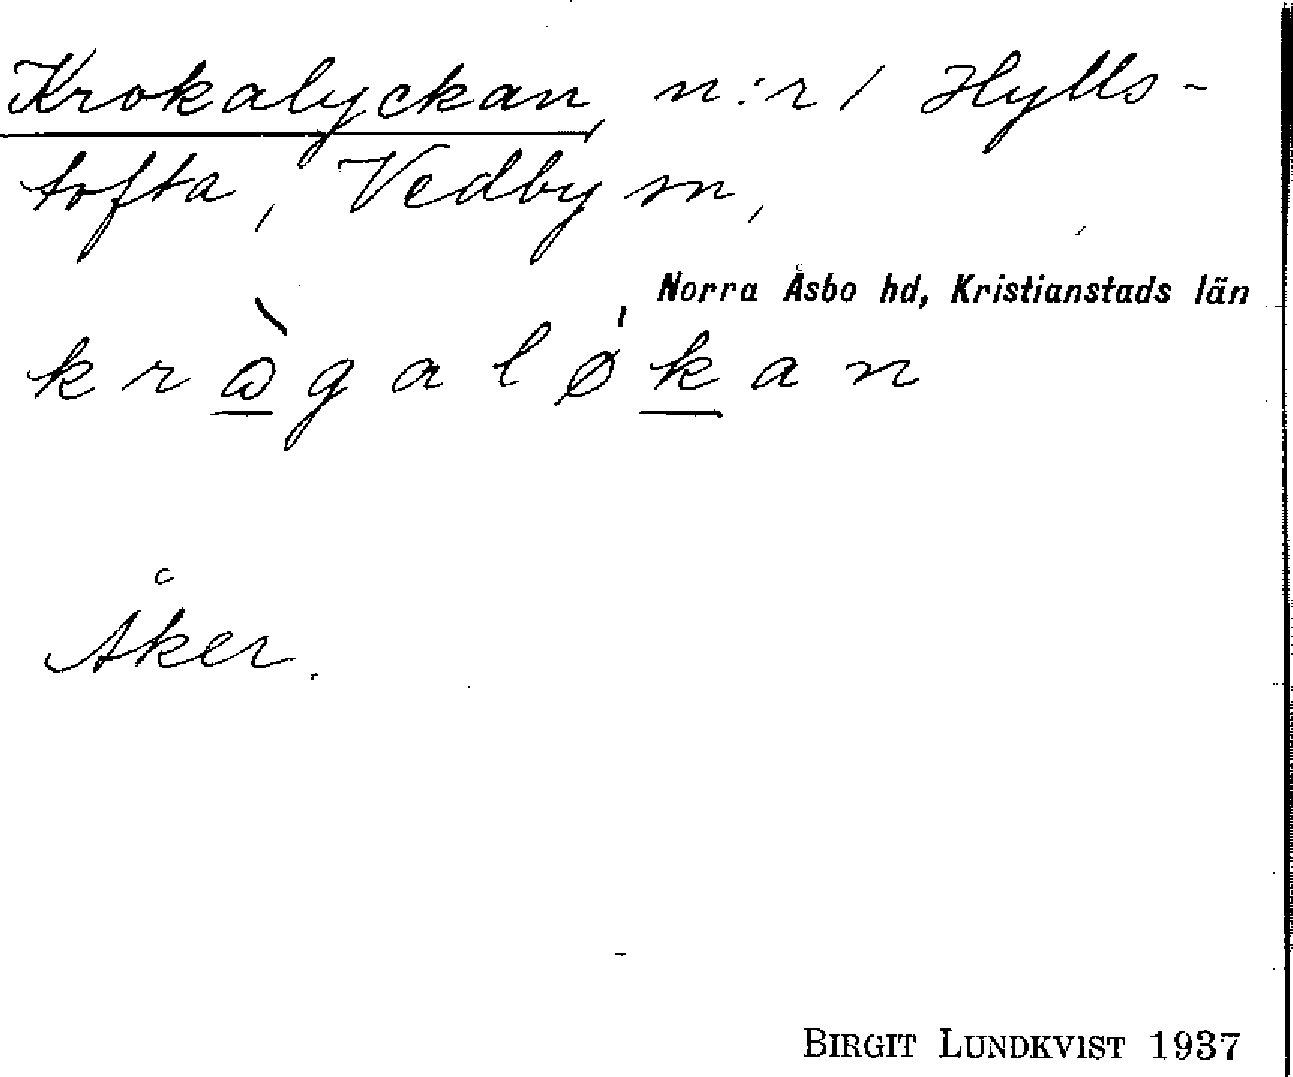 Krokalyckan, n:r 1 Hylls-
tofta, Vedby sn,
Norra Åsbo hd, Kristianstads län
krò̲galǿk̲an
Åker.
BIRGIT LUNDKVIST 1937